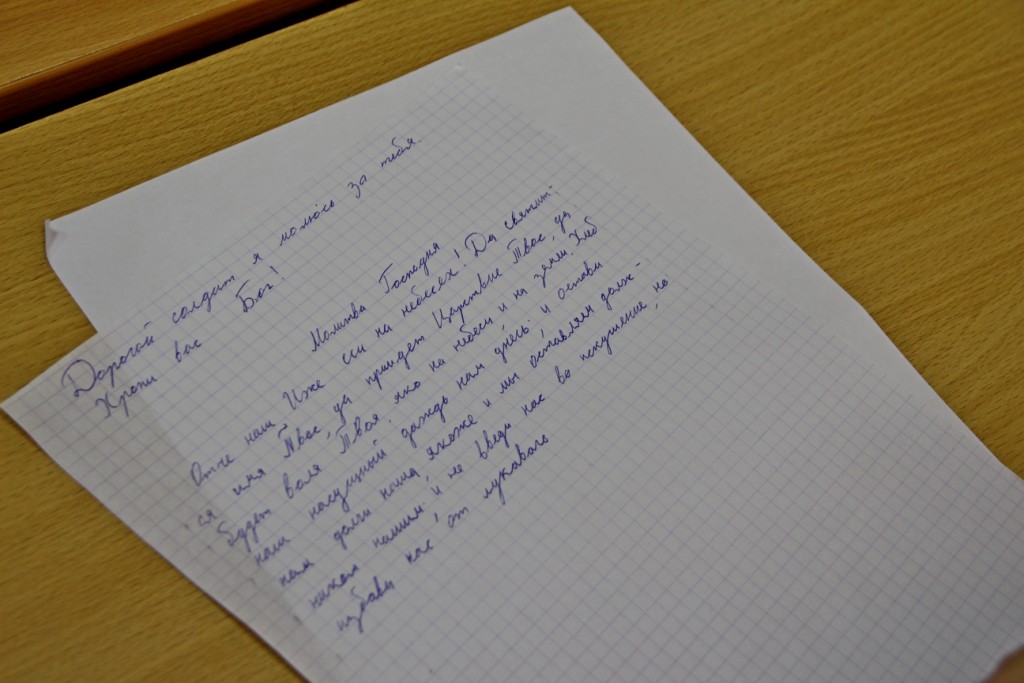 Дорогой солдат я молюсь за тебя.
Храни вас Бог!
Молитва Господня
Отче наш Иже еси на небесех! Да святит-
ся имя Твое, да приидет Царствие Твое, да
будет воля Твоя яко на небеси и на земли. Хлеб
наш насущный даждь нам днесь: и остави
нам долги наша, якоже и мы оставляем долж-
никам нашим: и не введи нас во искушение, но
избави нас от лукаваго